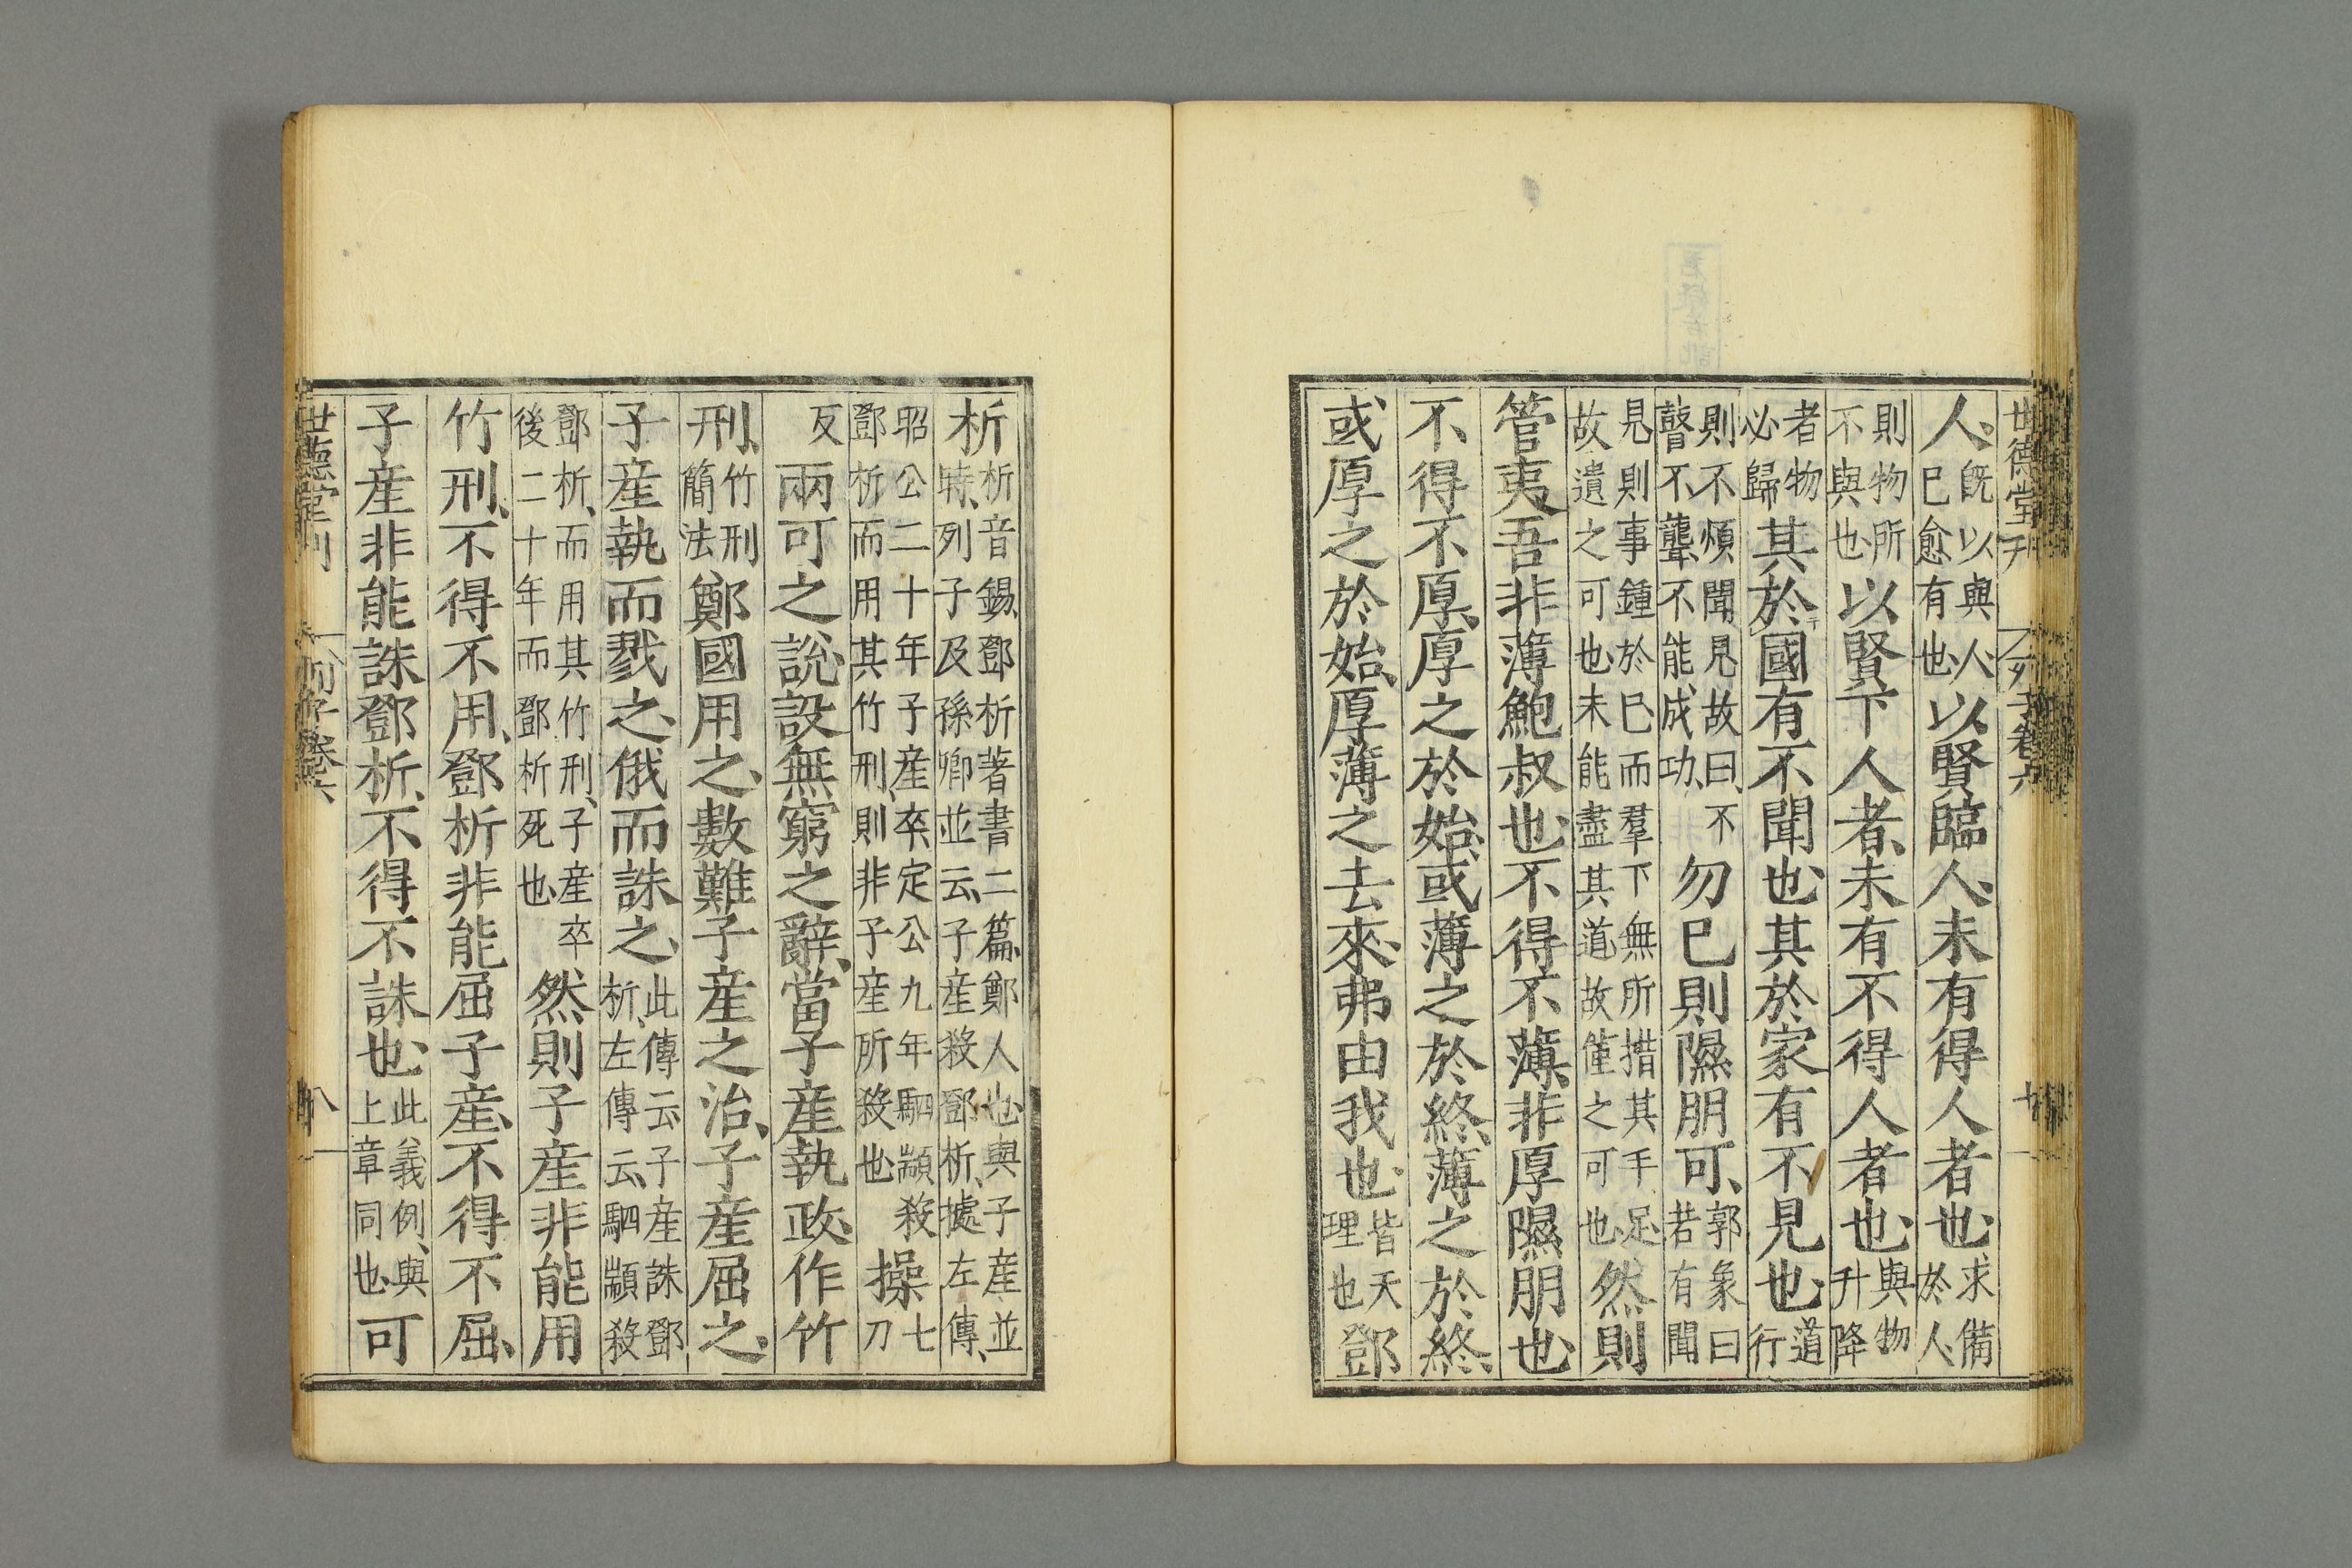 世德堂刊
列子卷六
人、既以與人、巳愈有也、以賢臨人、未有得人者也、求備於人、
則物所不與也、以賢下人者、未有不得人者也、與物升降
者物必歸其於國有不聞也、其於家有不見也、道行
則不煩聞見故曰、不瞽不聾、不能成功、勿巳則隰朋可、郭象曰若有聞
見則事鍾於巳而羣下無所措其手足故遺之可也未能盡其道故僅之可也、然則
管夷吾非薄鮑叔也、不得不薄、非厚隰朋也、
不得不厚、厚之於始、或薄之於終、薄之於終、
或厚之於始、厚薄之去來、弗由我也、皆天理也鄧
析析音錫、鄧析著書二篇、鄭人也、與子産並時、列子及孫卿並云、子産殺鄧析、據左傳、
昭公二十年子産卒定公九年駟顓殺鄧析而用其竹刑、則非子産所殺也操七刀
反兩可之說、設無窮之辭、當子産執政、作竹
刑、竹刑簡法、鄭國用之、數難子産之治、子産屈之、
子産執而戮之、俄而誅之、此傳云子産誅鄧析、左傳云、駟顓殺
鄧析、而用其竹刑、子産卒後二十年而鄧析死也、然則子産非能用
竹刑、不得不用、鄧析非能屈子産、不得不屈、
子産非能誅鄧析、不得不誅也、此義例、與上章同也、可
世德堂刊
列子卷六
八